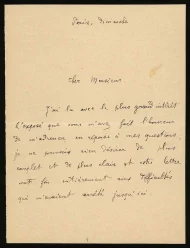 Paris, dimanche
Cher Monsieur
J'ai lu avec le plus grand intérêt
l'exposé que vous m'avez fait l'honneur
de m'adresser en réponse à mes questions,
je ne pouvais rien désirer de plus
complet et de plus clair et votre lettre
met fin entièrement aux difficultés
qui m'avaient arrêté jusqu'ici.